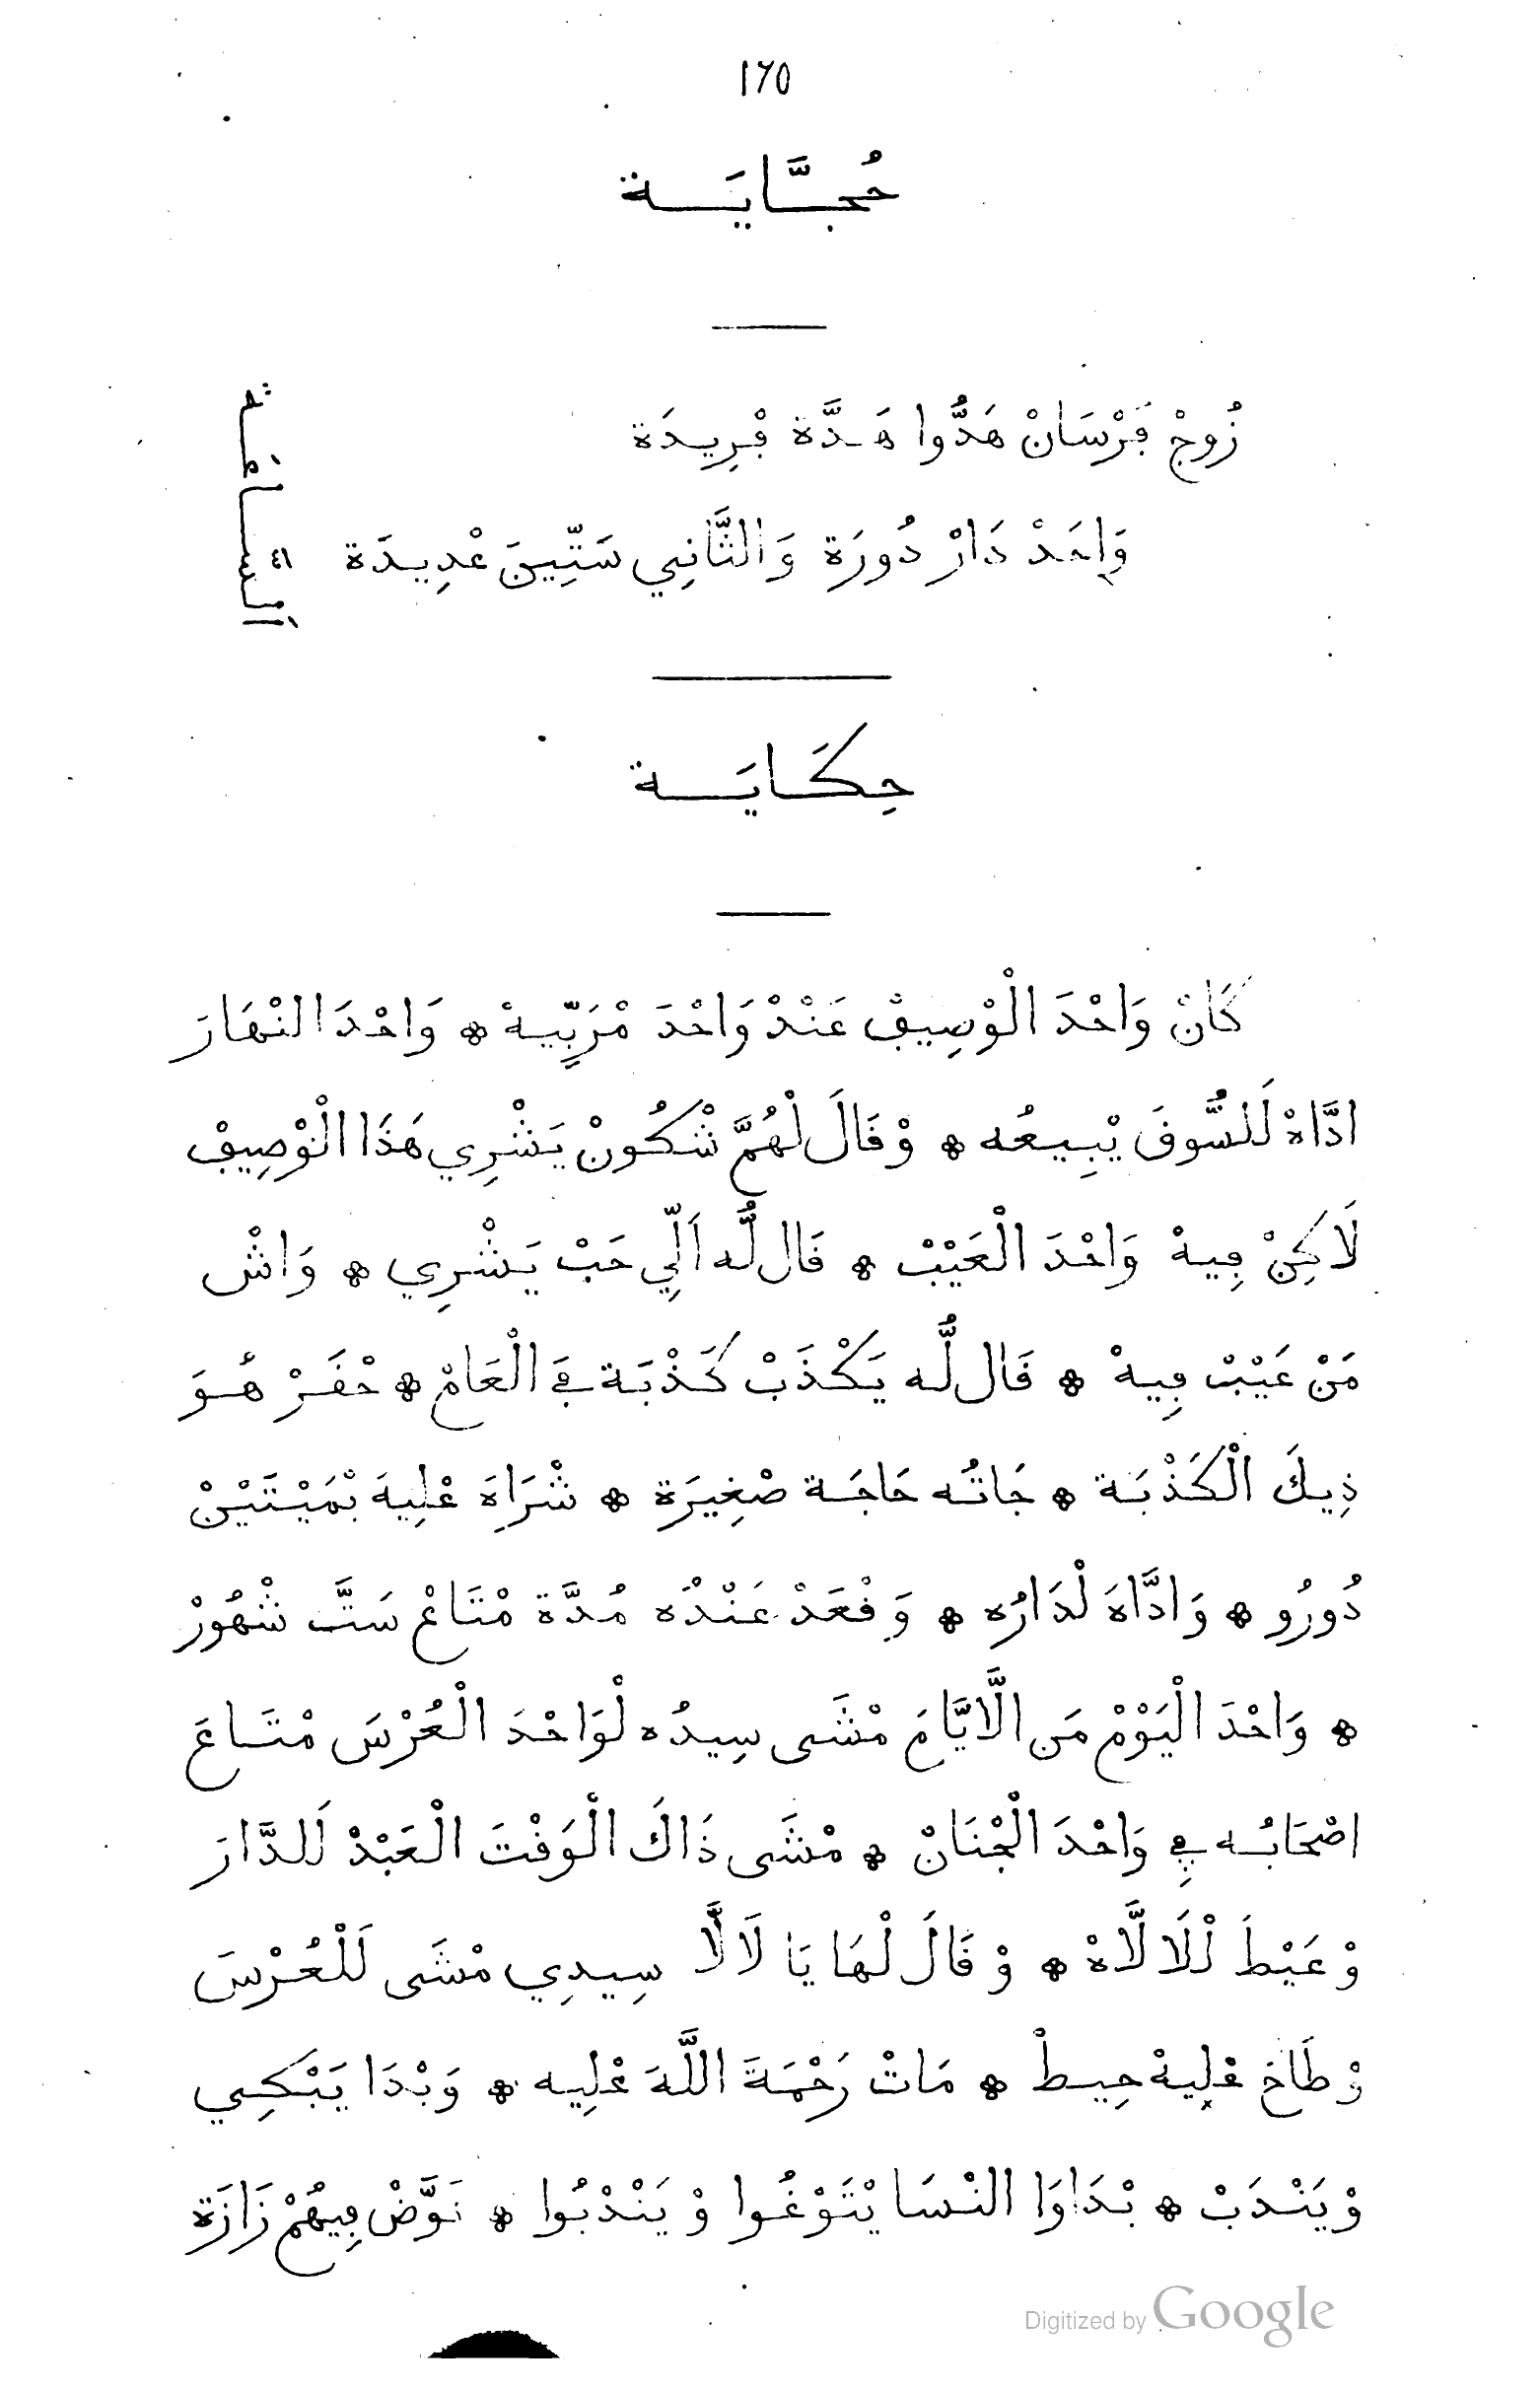 ١٦٥
حُجَّايَة
زُوجْ فَرْسَانْ هَدُّوا هَدَّة فْرِيدَة
وَاحَدْ دَارْ دُورَة وَالثَّانِي سَتِّينَ عْدِيدَة
حِكَايَة
كَانْ وَاحْدَ الْوْصِيفْ عَنْدْ وَاحْدَ مْرَبِّيهْ * وَاحْدَ النْهَارَ
ادَّاهْ لَلسُّوقَ يْبِيعُه * وْقَالَ لْهُمَّ شْكُونْ يَشْرِي هَذَا الْوْصِيفْ
لَاكِنْ فِيهْ وَاحْدَ الْعَيْبْ * قَال لُّه اَلِّي حَبْ يَشْرِي * وَاشْ
مَنْ عَيْبْ فِيهْ * قَال لُّه يَكْذَبْ كَذْبَة فَي الْعَامْ * حْفَرْ هُوَ
ذِيكَ الْكَذْبَة * جَاتُه حَاجَة صْغِيرَة * شْرَاهَ عْلِيهَ بْمَيْتَيْنْ
دُورُو * وَادَّاهَ لْدَارُه * وَقْعَدْ عَنْدُه مُدَّة مْتَاعْ سَتَّ شْهُورْ
* وَاحْدَ الْيَوْمْ مَن الَّايَّامَ مْشَى سِيدُه لْوَاحْدَ الْعُرْسَ مْتَاعَ
اصْحَابُه فِي وَاحْدَ الْجْنَانْ * مْشَى ذَاكَ الْوَقْتَ الْعَبْدْ لَلدَّارَ
وْعَيْطَ لْلَالَّاهْ * وْقَالَ لْهَا يَا لَالَّا سِيدِي مْشَى لَلْعُرْسَ
وْطَاحَ عْلِيهْ حِيطْ * مَاتْ رَحْمَةَ اللَّهَ عْلِيه * وَبْدَا يَبْكِي
وْيَنْدَبْ * بْدَاوَا النْسَا يْتَوْغُوا وْيَنْدْبُوا * نَوَّضْ فِيهُمْ زَازَة
Digitized by Google